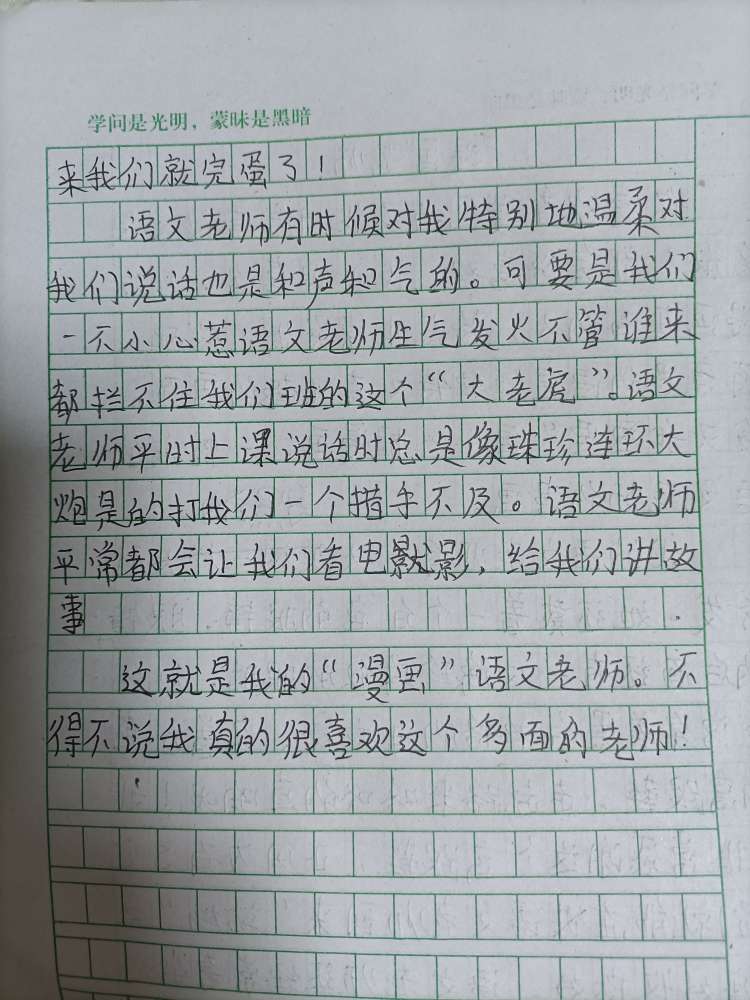 学问是光明，蒙昧是黑暗
来我们就完蛋了！
语文老师有时候对我特别地温柔对
我们说话也是和声和气的。可要是我们
一不小心惹语文老师生气发火不管谁来
都拦不住我们班的这个“大老虎”。语文
老师平时上课说话时总是像珠珍连环大
炮是的打我们一个措手不及。语文老师
平常都会让我们看电影，给我们讲故
事
这就是我的“漫画”语文老师。不
得不说我真的很喜欢这个多面的老师！